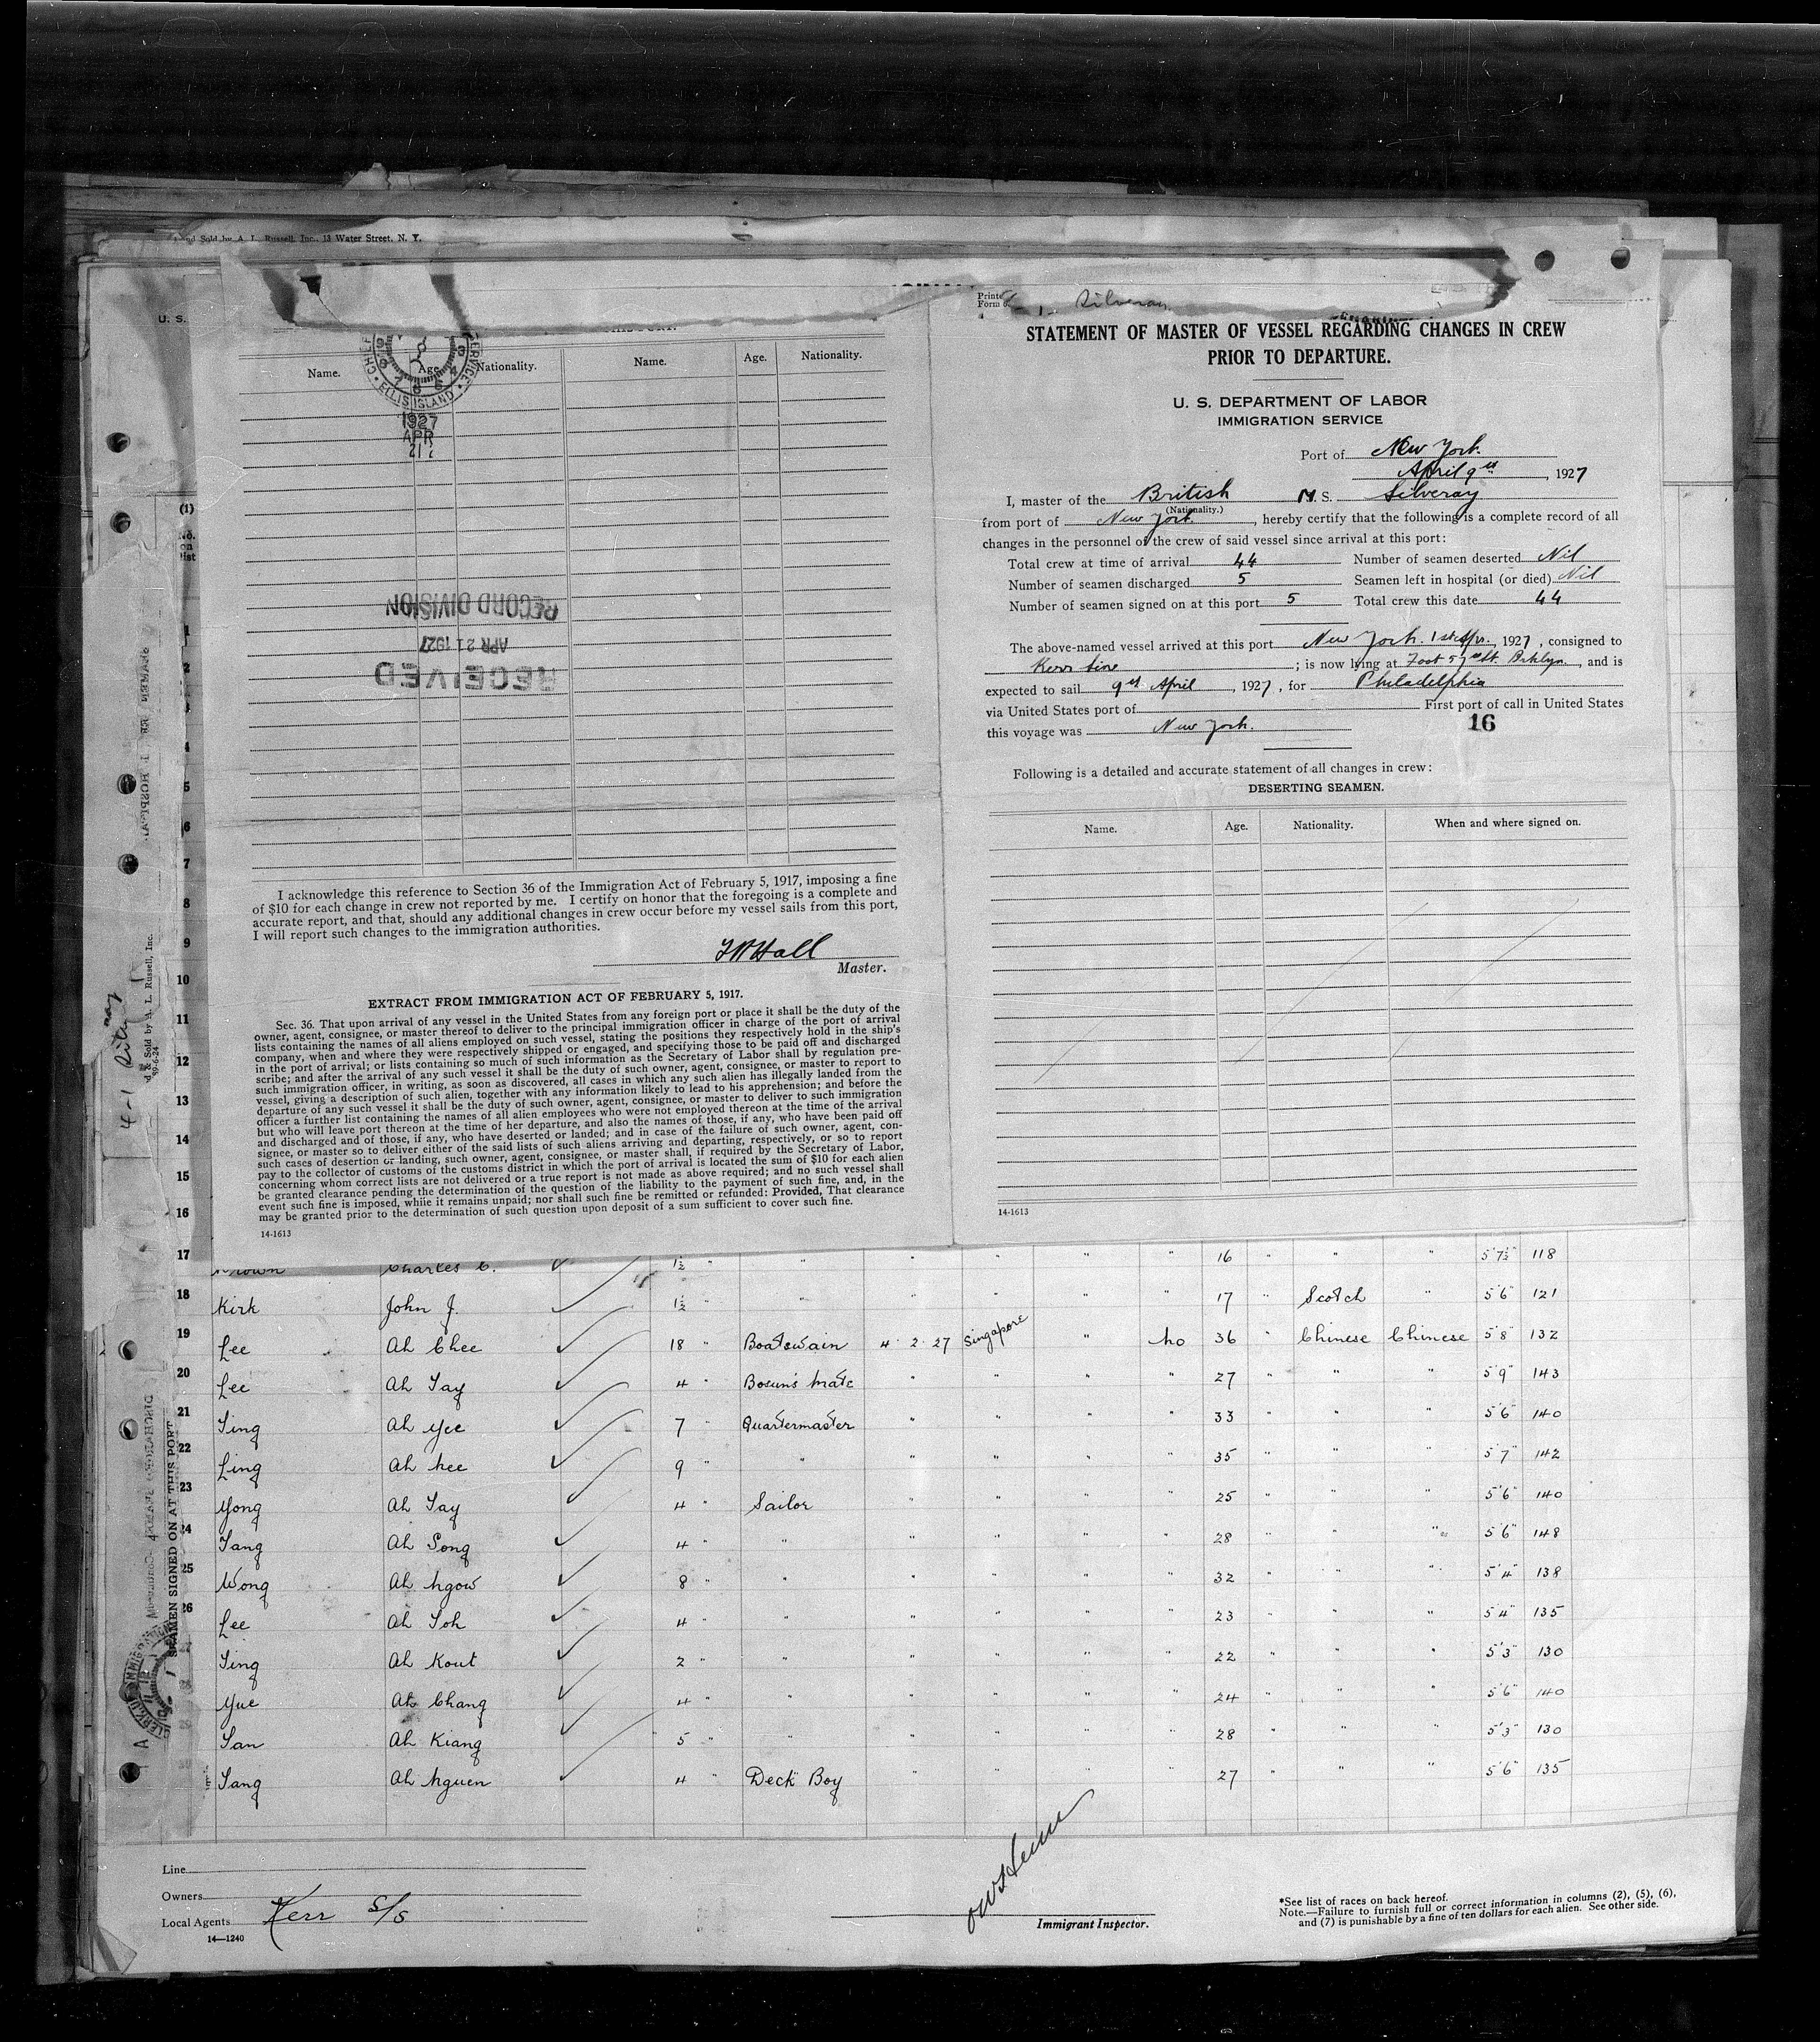 and Sold by A. L. Russell, Inc., 13 Water Street, N. Y.
U. S.
Name.
Age
Nationality.
Name.
Age.
Nationality.
CHIEF
SERVICE
ELLIS ISLAND
1927
APR
21
RECORD DIVISION
APR 21 1927
RECEIVED
I acknowledge this reference to Section 36 of the Immigration Act of February 5, 1917, imposing a fine
of $10 for each change in crew not reported by me. I certify on honor that the foregoing is a complete and
accurate report, and that, should any additional changes in crew occur before my vessel sails from this port,
I will report such changes to the immigration authorities.
Hall
Master.
EXTRACT FROM IMMIGRATION ACT OF FEBRUARY 5, 1917.
Sec. 36. That upon arrival of any vessel in the United States from any foreign port or place it shall be the duty of the
owner, agent, consignee, or master thereof to deliver to the principal immigration officer in charge of the port of arrival
lists containing the names of all aliens employed on such vessel, stating the positions they respectively hold in the ship's
company, when and where they were respectively shipped or engaged, and specifying those to be paid off and discharged
in the port of arrival; or lists containing so much of such information as the Secretary of Labor shall by regulation pre-
scribe; and after the arrival of any such vessel it shall be the duty of such owner, agent, consignee, or master to report to
such immigration officer, in writing, as soon as discovered, all cases in which any such alien has illegally landed from the
vessel, giving a description of such alien, together with any information likely to lead to his apprehension; and before the
departure of any such vessel it shall be the duty of such owner, agent, consignee, or master to deliver to such immigration
officer a further list containing the names of all alien employees who were not employed thereon at the time of the arrival
but who will leave port thereon at the time of her departure, and also the names of those, if any, who have been paid off
and discharged and of those, if any, who have deserted or landed; and in case of the failure of such owner, agent, con-
signee, or master so to deliver either of the said lists of such aliens arriving and departing, respectively, or so to report
such cases of desertion or landing, such owner, agent, consignee, or master shall, if required by the Secretary of Labor,
pay to the collector of customs of the customs district in which the port of arrival is located the sum of $10 for each alien
concerning whom correct lists are not delivered or a true report is not made as above required; and no such vessel shall
be granted clearance pending the determination of the question of the liability to the payment of such fine, and, in the
event such fine is imposed, while it remains unpaid; nor shall such fine be remitted or refunded: Provided, That clearance
may be granted prior to the determination of such question upon deposit of a sum sufficient to cover such fine.
14-1613
Silveray
STATEMENT OF MASTER OF VESSEL REGARDING CHANGES IN CREW
PRIOR TO DEPARTURE.
U. S. DEPARTMENT OF LABOR
IMMIGRATION SERVICE
Port of New York.
April 9th, 1927
I, master of the British M. S. Silveray
(Nationality.)
from port of New York, hereby certify that the following is a complete record of all
changes in the personnel of the crew of said vessel since arrival at this port:
Total crew at time of arrival 44 Number of seamen deserted Nil
Number of seamen discharged 5 Seamen left in hospital (or died) Nil
Number of seamen signed on at this port 5 Total crew this date 44
The above-named vessel arrived at this port New York. 1st Apr., 1927, consigned to
Kerr Line; is now lying at Foot 57th St. Bklyn, and is
expected to sail 9th April, 1927, for Philadelphia
via United States port of First port of call in United States
this voyage was New York. 16
Following is a detailed and accurate statement of all changes in crew:
DESERTING SEAMEN.
Name. Age. Nationality. When and where signed on.
14-1613
(1)
No. on list
1
2
3
4
5
6
7
8
9
10
11
12
13
14
15
16
d & Sold by A. L. Russell, Inc.
SEAMEN SIGNED ON AT THIS PORT
17 Brown Charles C. 1½ " " " " " " 16 " " " 5'7½" 118
18 Kirk John J. 1½ " " " " " " 17 " Scotch " 5'6" 121
19 Lee Ah Chee 18 " Boatswain 4 2 27 Singapore " No 36 " Chinese Chinese 5'8" 132
20 Lee Ah Tay 4 " Bosun's Mate " " " " 27 " " " 5'9" 143
21 Ting Ah Yee 7 " Quartermaster " " " " 33 " " " 5'6" 140
22 Ling Ah Kee 9 " " " " " " 35 " " " 5'7" 142
23 Yong Ah Tay 4 " Sailor " " " " 25 " " " 5'6" 140
24 Tang Ah Song 4 " " " " " " 28 " " " 5'6" 148
25 Wong Ah Ngow 8 " " " " " " 32 " " " 5'4" 138
26 Lee Ah Toh 4 " " " " " " 23 " " " 5'4" 135
Ting Ah Kout 2 " " " " " " 22 " " " 5'3" 130
Yue Ah Chang 4 " " " " " " 24 " " " 5'6" 140
San Ah Kiang 5 " " " " " " 28 " " " 5'3" 130
Tang Ah Nguen 4 " Deck Boy " " " " 27 " " " 5'6" 135
Line
Owners
Local Agents Kerr S/S
14—1240
Immigrant Inspector.
*See list of races on back hereof.
Note.—Failure to furnish full or correct information in columns (2), (5), (6),
and (7) is punishable by a fine of ten dollars for each alien. See other side.